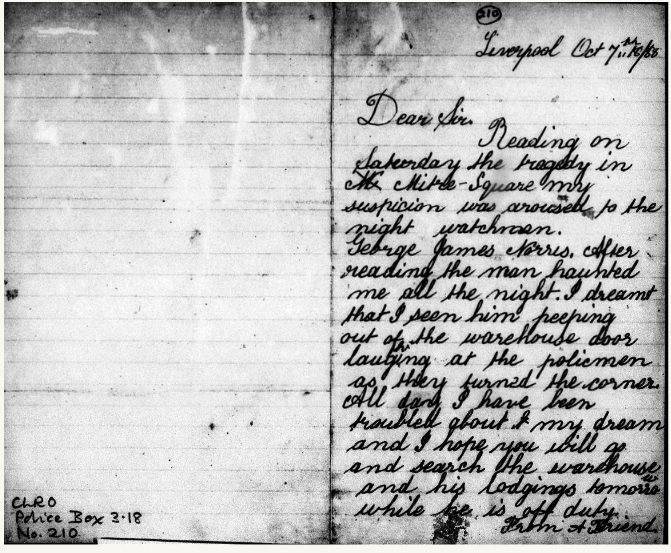 210
Liverpool Oct 7th 1888
Dear Sir.
Reading on
Saturday the tragedy in
the Mitre-Square my
suspicion was aroused to the
night watchman.
George James Norris. After
reading the man haunted
me all the night. I dreamt
that I seen him peeping
out of the warehouse door
lauging at the policemen
as they turned the corner.
All day I have been
troubled about it my dream
and I hope you will go
and search the warehouse
and his lodgings tomorrow
while he is off duty.
From A Friend
CLRO
Police Box 3.18
No. 210